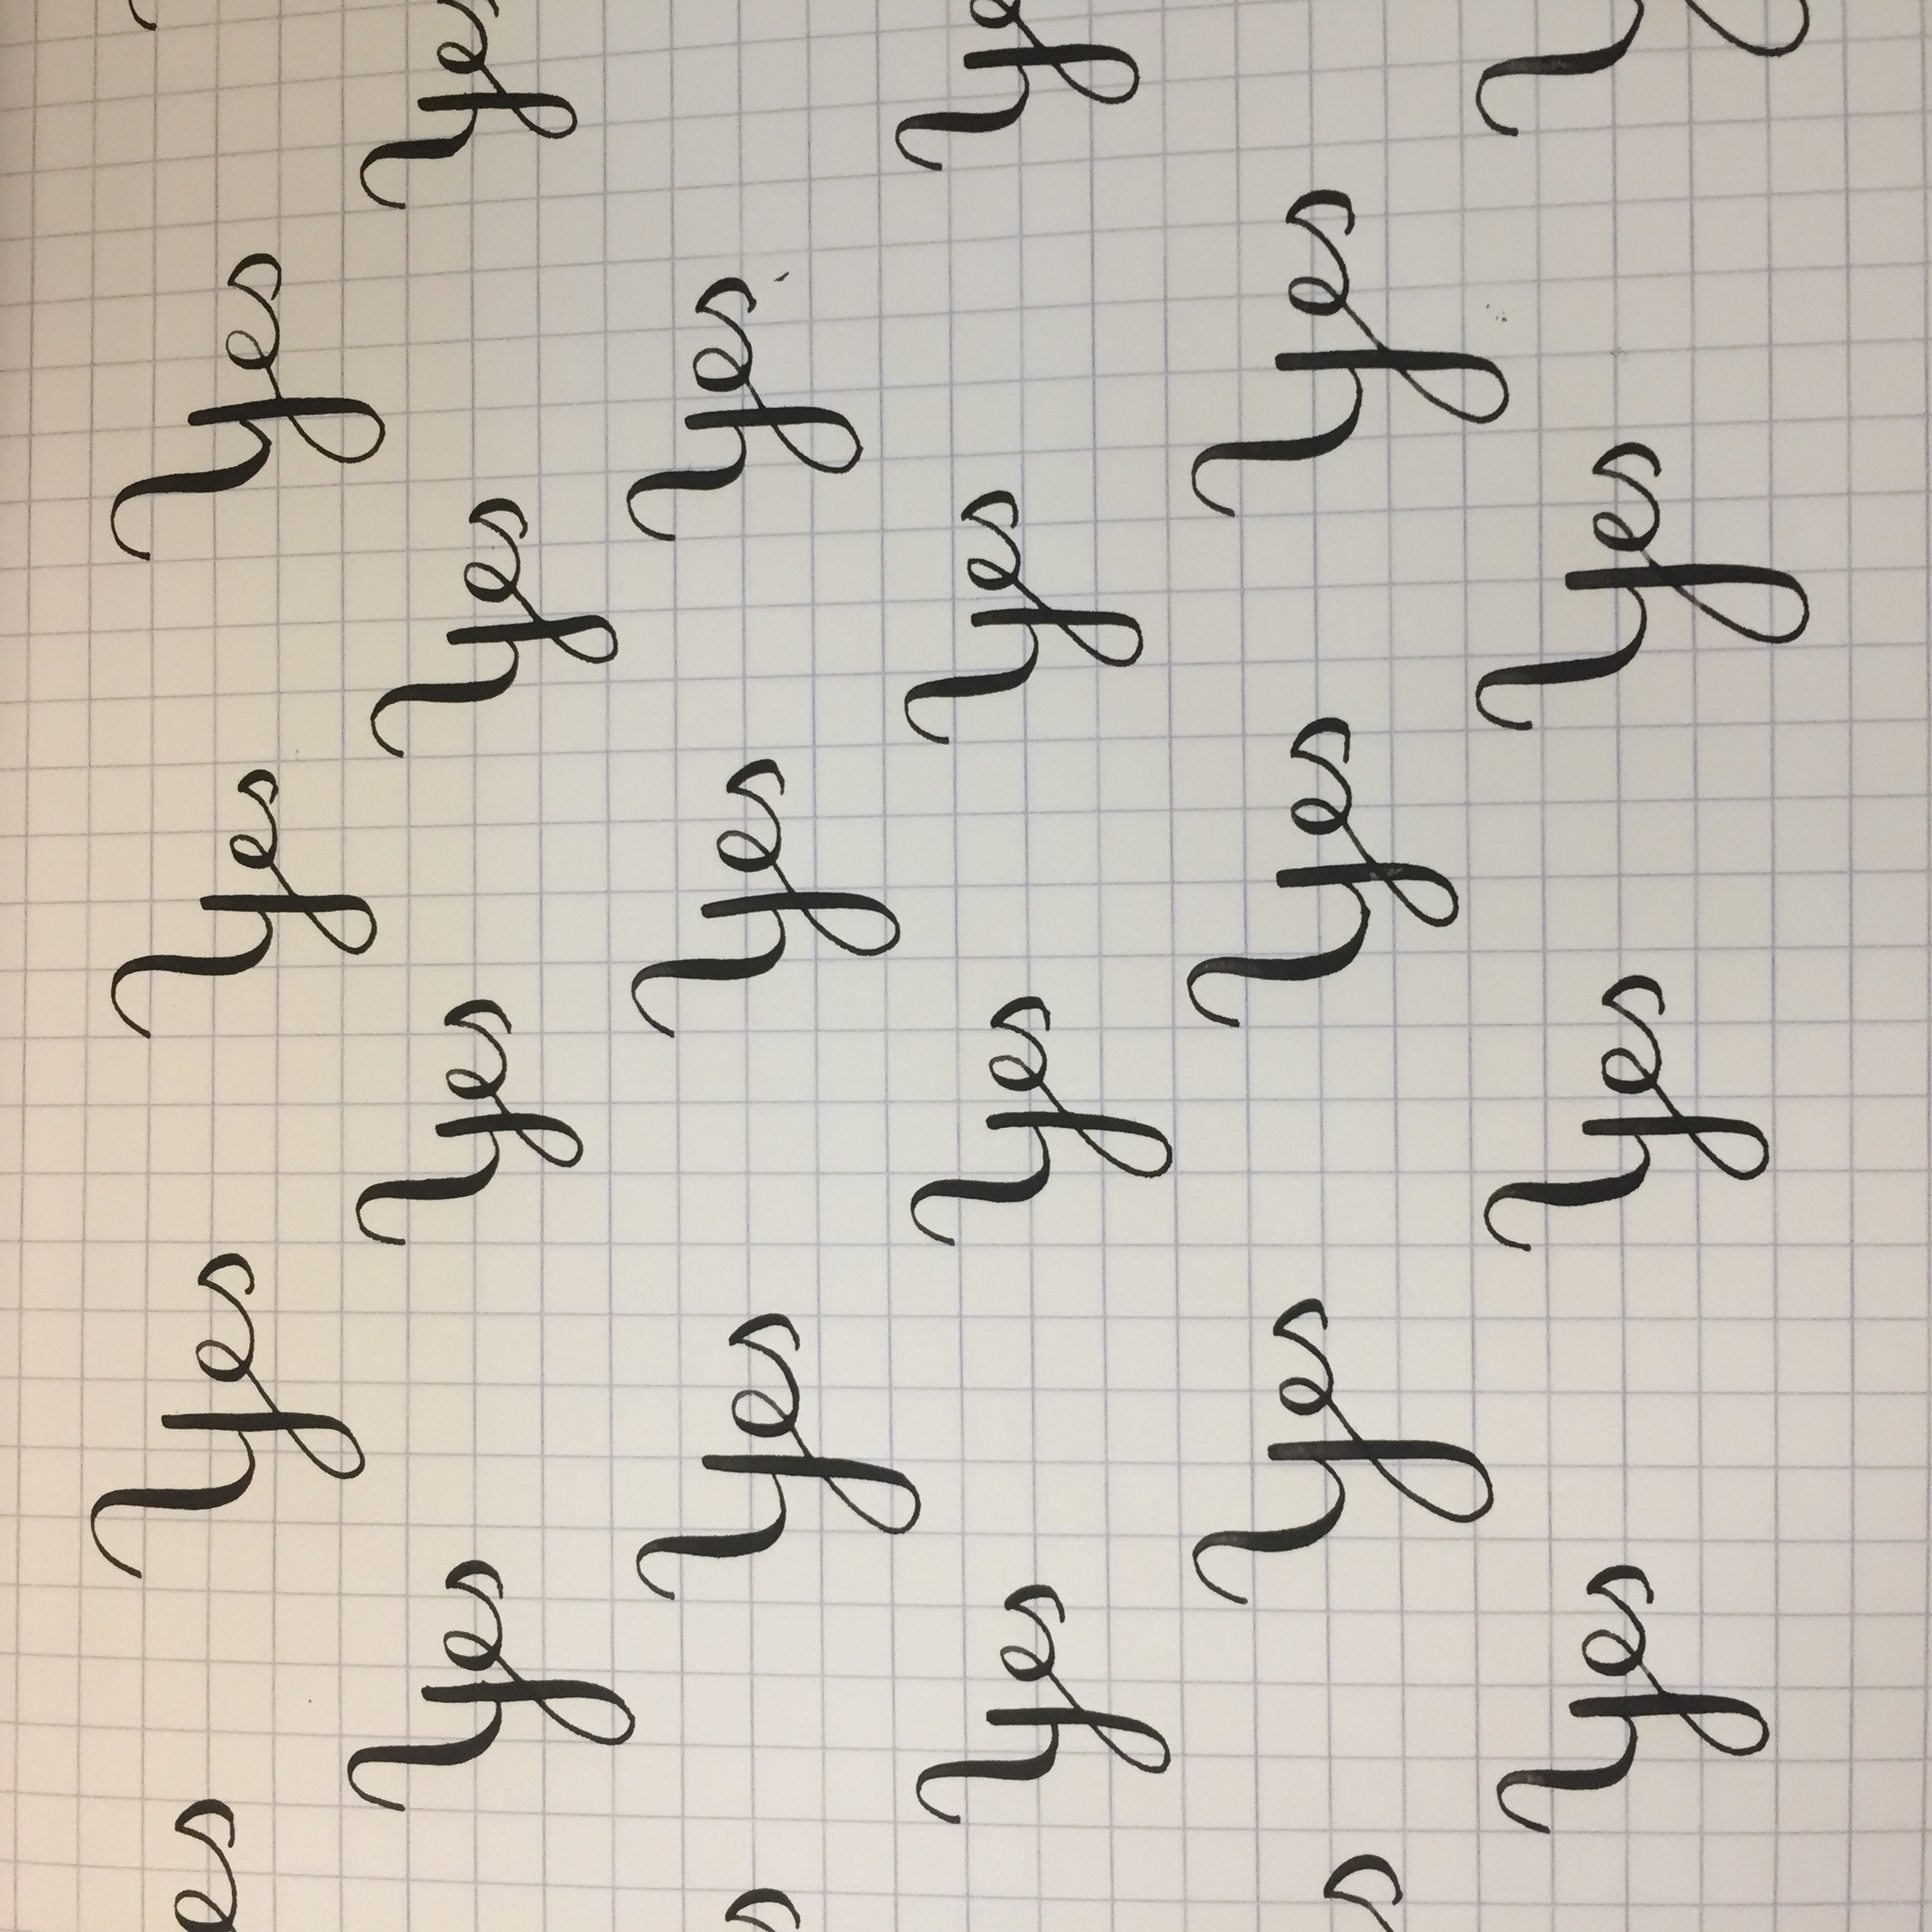 es Yes Yes Yes
Yes Yes Yes Yes
s Yes Yes Yes
Yes Yes Yes Ye
s Yes Yes Yes
Yes Yes Yes Y